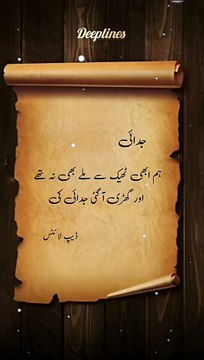 Deeplines
جدائی
ہم ابھی ٹھیک سے ملے بھی نہ تھے
اور گھڑی آ گئی جدائی کی
ڈیپ لائنس